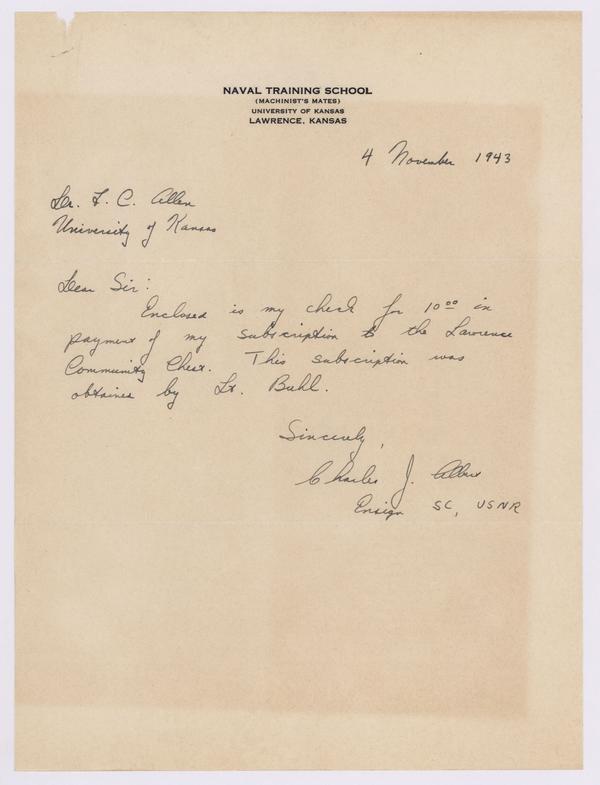 NAVAL TRAINING SCHOOL
(MACHINIST'S MATES)
UNIVERSITY OF KANSAS
LAWRENCE, KANSAS
4 November 1943
Dr. F. C. Allen
University of Kansas
Dear Sir:
Enclosed is my check for 10⁰⁰ in
payment of my subscription to the Lawrence
Community Chest. This subscription was
obtained by Lt. Buhl.
Sincerely,
Charles J.
Ensign SC, USNR